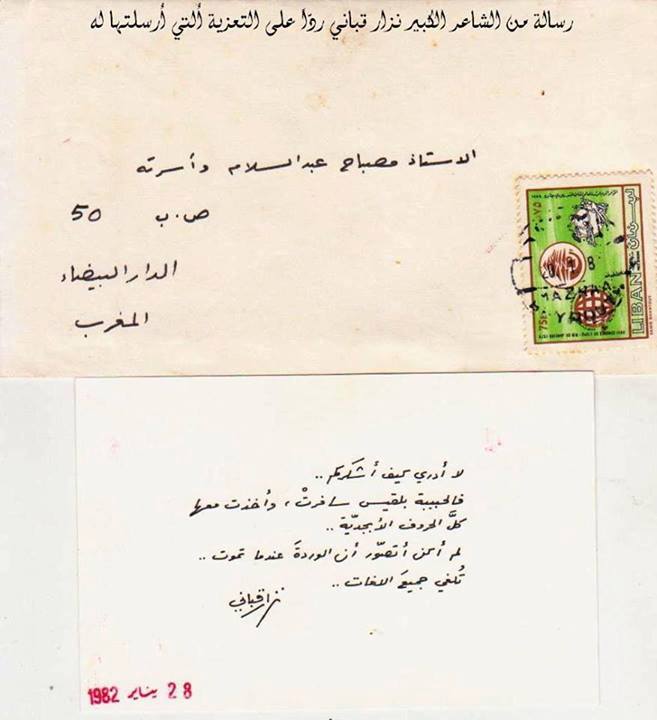 رسالة من الشاعر الكبير نزار قباني ردّا على التعزية ألتي أرسلتها له
الاستاذ مصباح عبدالسلام وأسرته
ص.ب 50
الدار البيضاء
المغرب
لبنان
LIBAN
75P
لا أدري كيف أشكركم..
فالحبيبة بلقيس سافرتْ، وأخذت معها
كلَّ الحروف الأبجديّة..
لم أكن أتصوّر أن الوردةَ عندما تموت..
تُلغي جميعَ اللغات..
نزار قباني
28 يناير 1982